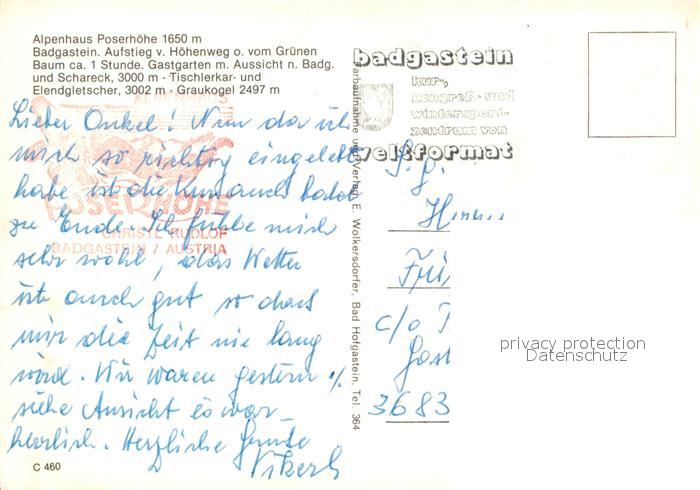 Alpenhaus Poserhöhe 1650 m
Badgastein. Aufstieg v. Höhenweg o. vom Grünen
Baum ca. 1 Stunde. Gastgarten m. Aussicht n. Badg.
und Schareck, 3000 m - Tischlerkar- und
Elendgletscher, 3002 m - Graukogel 2497 m
ALPENHAUS
POSERHÖHE
CHRISTL RUDLOF
BADGASTEIN / AUSTRIA
Lieber Onkel! Nun da ich
mich so richtig eingelebt
habe ist die auch
zu Ende. Ich fühle mich
sehr wohl, das Wetter
ist auch gut so dass
mir die Zeit nie lang
wird. Wir waren gestern %
siehe Ansicht es war
herrlich. Herzliche
C 460
Farbaufnahme und Verlag E. Wolkersdorfer, Bad Hofgastein, Tel. 364
badgastein
kur-,
kongreß- und
wintersport-
zentrum von
weltformat
S. g.
c/o
3683
privacy protection
Datenschutz